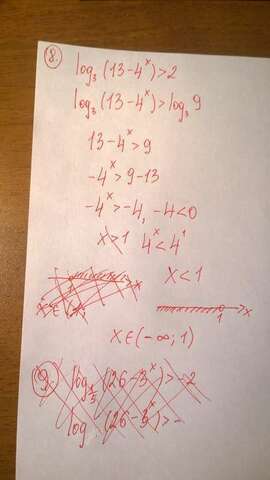 8.
log₃(13-4ˣ)>2
log₃(13-4ˣ)>log₃9
13-4ˣ>9
-4ˣ>9-13
-4ˣ>-4, -4<0
x>1 4ˣ<4¹
x<1
1 x
x∈(-∞;1)
9. log (26-3ˣ)>-2
log (26-3ˣ)>-